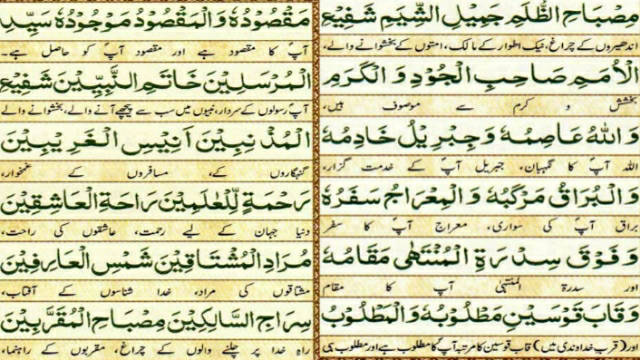 مِصْبَاحِ الظُّلَمِ جَمِيْلِ الشِّيَمِ شَفِيْعِ
اندھیروں کے چراغ، نیک اطوار کے مالک، امتوں کے بخشوانے والے،
الْاُمَمِ صَاحِبِ الْجُوْدِ وَ الْكَرَمِ
بخشش و کرم سے موصوف ہیں،
وَ اللّٰهُ عَاصِمُهٗ وَ جِبْرِيْلُ خَادِمُهٗ
اللہ آپؐ کا نگہبان، جبریل آپؐ کے خدمت گزار،
وَ الْبُرَاقُ مَرْكَبُهٗ وَ الْمِعْرَاجُ سَفَرُهٗ
براق آپؐ کی سواری، معراج آپؐ کا سفر
وَ فَوْقَ سِدْرَةِ الْمُنْتَهٰى مَقَامُهٗ
اور سدرۃ المنتہیٰ آپؐ کا مقام
وَ قَابَ قَوْسَيْنِ مَطْلُوْبُهٗ وَ الْمَطْلُوْبُ
اور (قرب خداوندی میں) قاب قوسین کا مرتبہ آپؐ کا مطلوب ہے اور مطلوب ہی
مَقْصُوْدُهٗ وَ الْمَقْصُوْدُ مَوْجُوْدُهٗ سَيِّدِ
آپؐ کا مقصود ہے اور مقصود آپؐ کو حاصل ہے۔
الْمُرْسَلِيْنَ خَاتَمِ النَّبِيِّيْنَ شَفِيْعِ
آپؐ رسولوں کے سردار، نبیوں میں سب سے پیچھے آنے والے، بخشوانے والے
الْمُذْنِبِيْنَ اَنِيْسِ الْغَرِيْبِيْنَ
گنہگاروں کے، مسافروں کے غمخوار،
رَحْمَةٍ لِّلْعٰلَمِيْنَ رَاحَةِ الْعَاشِقِيْنَ
دنیا جہان کے لیے رحمت، عاشقوں کی راحت،
مُرَادِ الْمُشْتَاقِيْنَ شَمْسِ الْعَارِفِيْنَ
مشتاقوں کی مراد، خدا شناسوں کے آفتاب،
سِرَاجِ السَّالِكِيْنَ مِصْبَاحِ الْمُقَرَّبِيْنَ
راہِ خدا پر چلنے والوں کے چراغ، مقربوں کے راہنما،